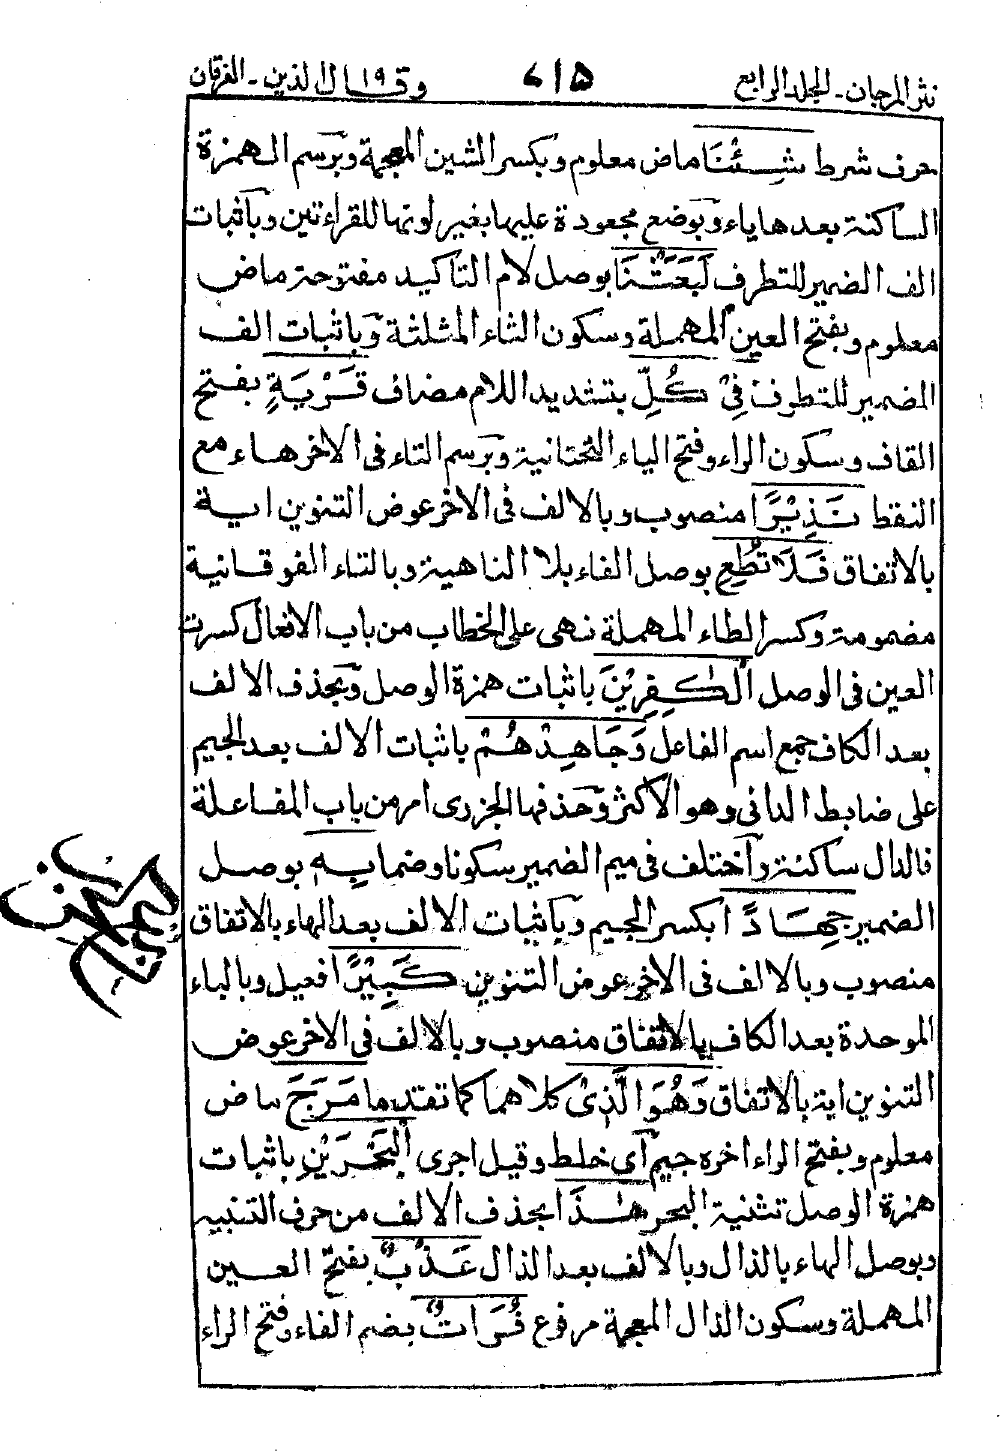 نثر المرجان۔ الجلد الرابع ٧١٥ وقال الذین ١٩ ۔ الفرقان
حرف شرط شِئْنَا ماض معلوم وبكسر الشين المعجمة وبرسم الهمزة
الساكنة بعدها ياء وبوضع مجعودة عليها بغير لونها للقراءتين وباثبات
الف الضمير للتطرف لَبَعَثْنَا بوصل لام التاكيد مفتوحة ماض
معلوم وبفتح العين المهملة وسكون الثاء المثلثة وباثبات الف
الضمير للتطرف فِیْ كُلِّ بتشديد اللام مضاف قَرْيَةٍ بفتح
القاف وسكون الراء وفتح الياء التحتانية وبرسم التاء فى الاخر هاء مع
النقط نَذِيْرًا منصوب وبالالف فى الاخر عوض التنوين اية
بالاتفاق فَلَا تُطِعِ بوصل الفاء بلا الناهية وبالتاء الفوقانية
مضمومة وكسر الطاء المهملة نهى على الخطاب من باب الافعال كسرت
العين فى الوصل الْكٰفِرِيْنَ باثبات همزة الوصل وبحذف الالف
بعد الكاف جمع اسم الفاعل وَجَاهِدْهُمْ باثبات الالف بعد الجيم
على ضابط الدانى وهو الاكثر وحذفها الجزرى امر من باب المفاعلة
فالدال ساكنة واختلف فى ميم الضمير سكونا وضما بِهٖ بوصل
الضمير جِهَادًا بكسر الجيم وباثبات الالف بعد الهاء بالاتفاق
منصوب وبالالف فى الاخر عوض التنوين كَبِيْرًا فعيل وبالباء
الموحدة بعد الكاف بالاتفاق منصوب وبالالف فى الاخر عوض
التنوين اية بالاتفاق وَهُوَ الَّذِیْ كلاهما كما تقدما مَرَجَ ماض
معلوم وبفتح الراء اخره جيم اى خلط وقيل اجرى الْبَحْرَيْنِ باثبات
همزة الوصل تثنية البحر هٰذَا بحذف الالف من حرف التنبيه
وبوصل الهاء بالذال وبالالف بعد الذال عَذْبٌ بفتح العين
المهملة وسكون الذال المعجمة مرفوع فُرَاتٌ بضم الفاء وفتح الراء